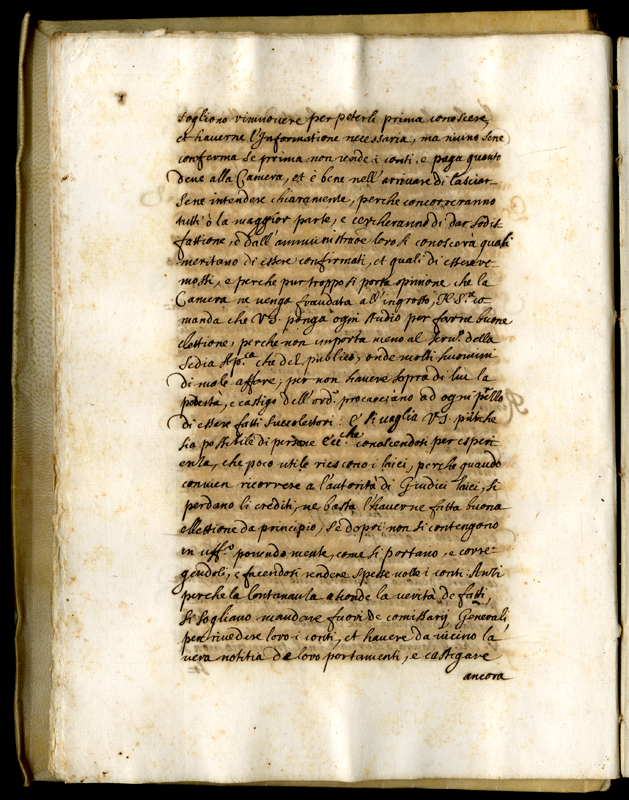 sogliono rimuovere per poterli prima conoscere,
et haverne l'Informatione necessaria, ma niuno sene
conferma se prima non rende i conti, e paga quanto
deve alla Camera, et è bene nell'arrivare di lasciar-
sene intendere chiaramente, perche concorreranno
tutti ò la maggior parte, e cercheranno di dar sodis
fattione, e dall'amministrat.ne loro si conoscerà quali
meritano di essere confirmati, et quali di essere re-
mossi, e perche pur troppo si porta opinione che la
Camera ne venga fraudata all'ingrosso, N. S.re co
manda che V.S. ponga ogni studio per farne buone
elettione, perche non importa meno al serv.o della
Sedia Ap.ca che del publico, onde molti huomini
di male affare, pur non havere sopra di lui la
potestà, e castigo dell'ord.o procacciano ad ogni
di essere fatti succolettori: E si vaglia V.S. più che
sia possibile di persone ecc.che conoscendosi per esperi
enza, che poco utile riescono i laici, perche quando
convien ricorrere a l'autorità di Giudici laici, si
perdano li crediti, ne basta l'haverne fatta buona
ellettione da principio, se dopoi non si contengono
in uff.o ponendo mente, come si portano, e corre-
gendoli, e facendosi rendere spesse volte i conti. Anzi
perche la lontananza asconde la verità de fatti,
si sogliano mandare fuori de comissarij Generali,
per rivedere loro i conti, et havere da vicino la
vera notitia de loro portamenti, e castigare
ancora